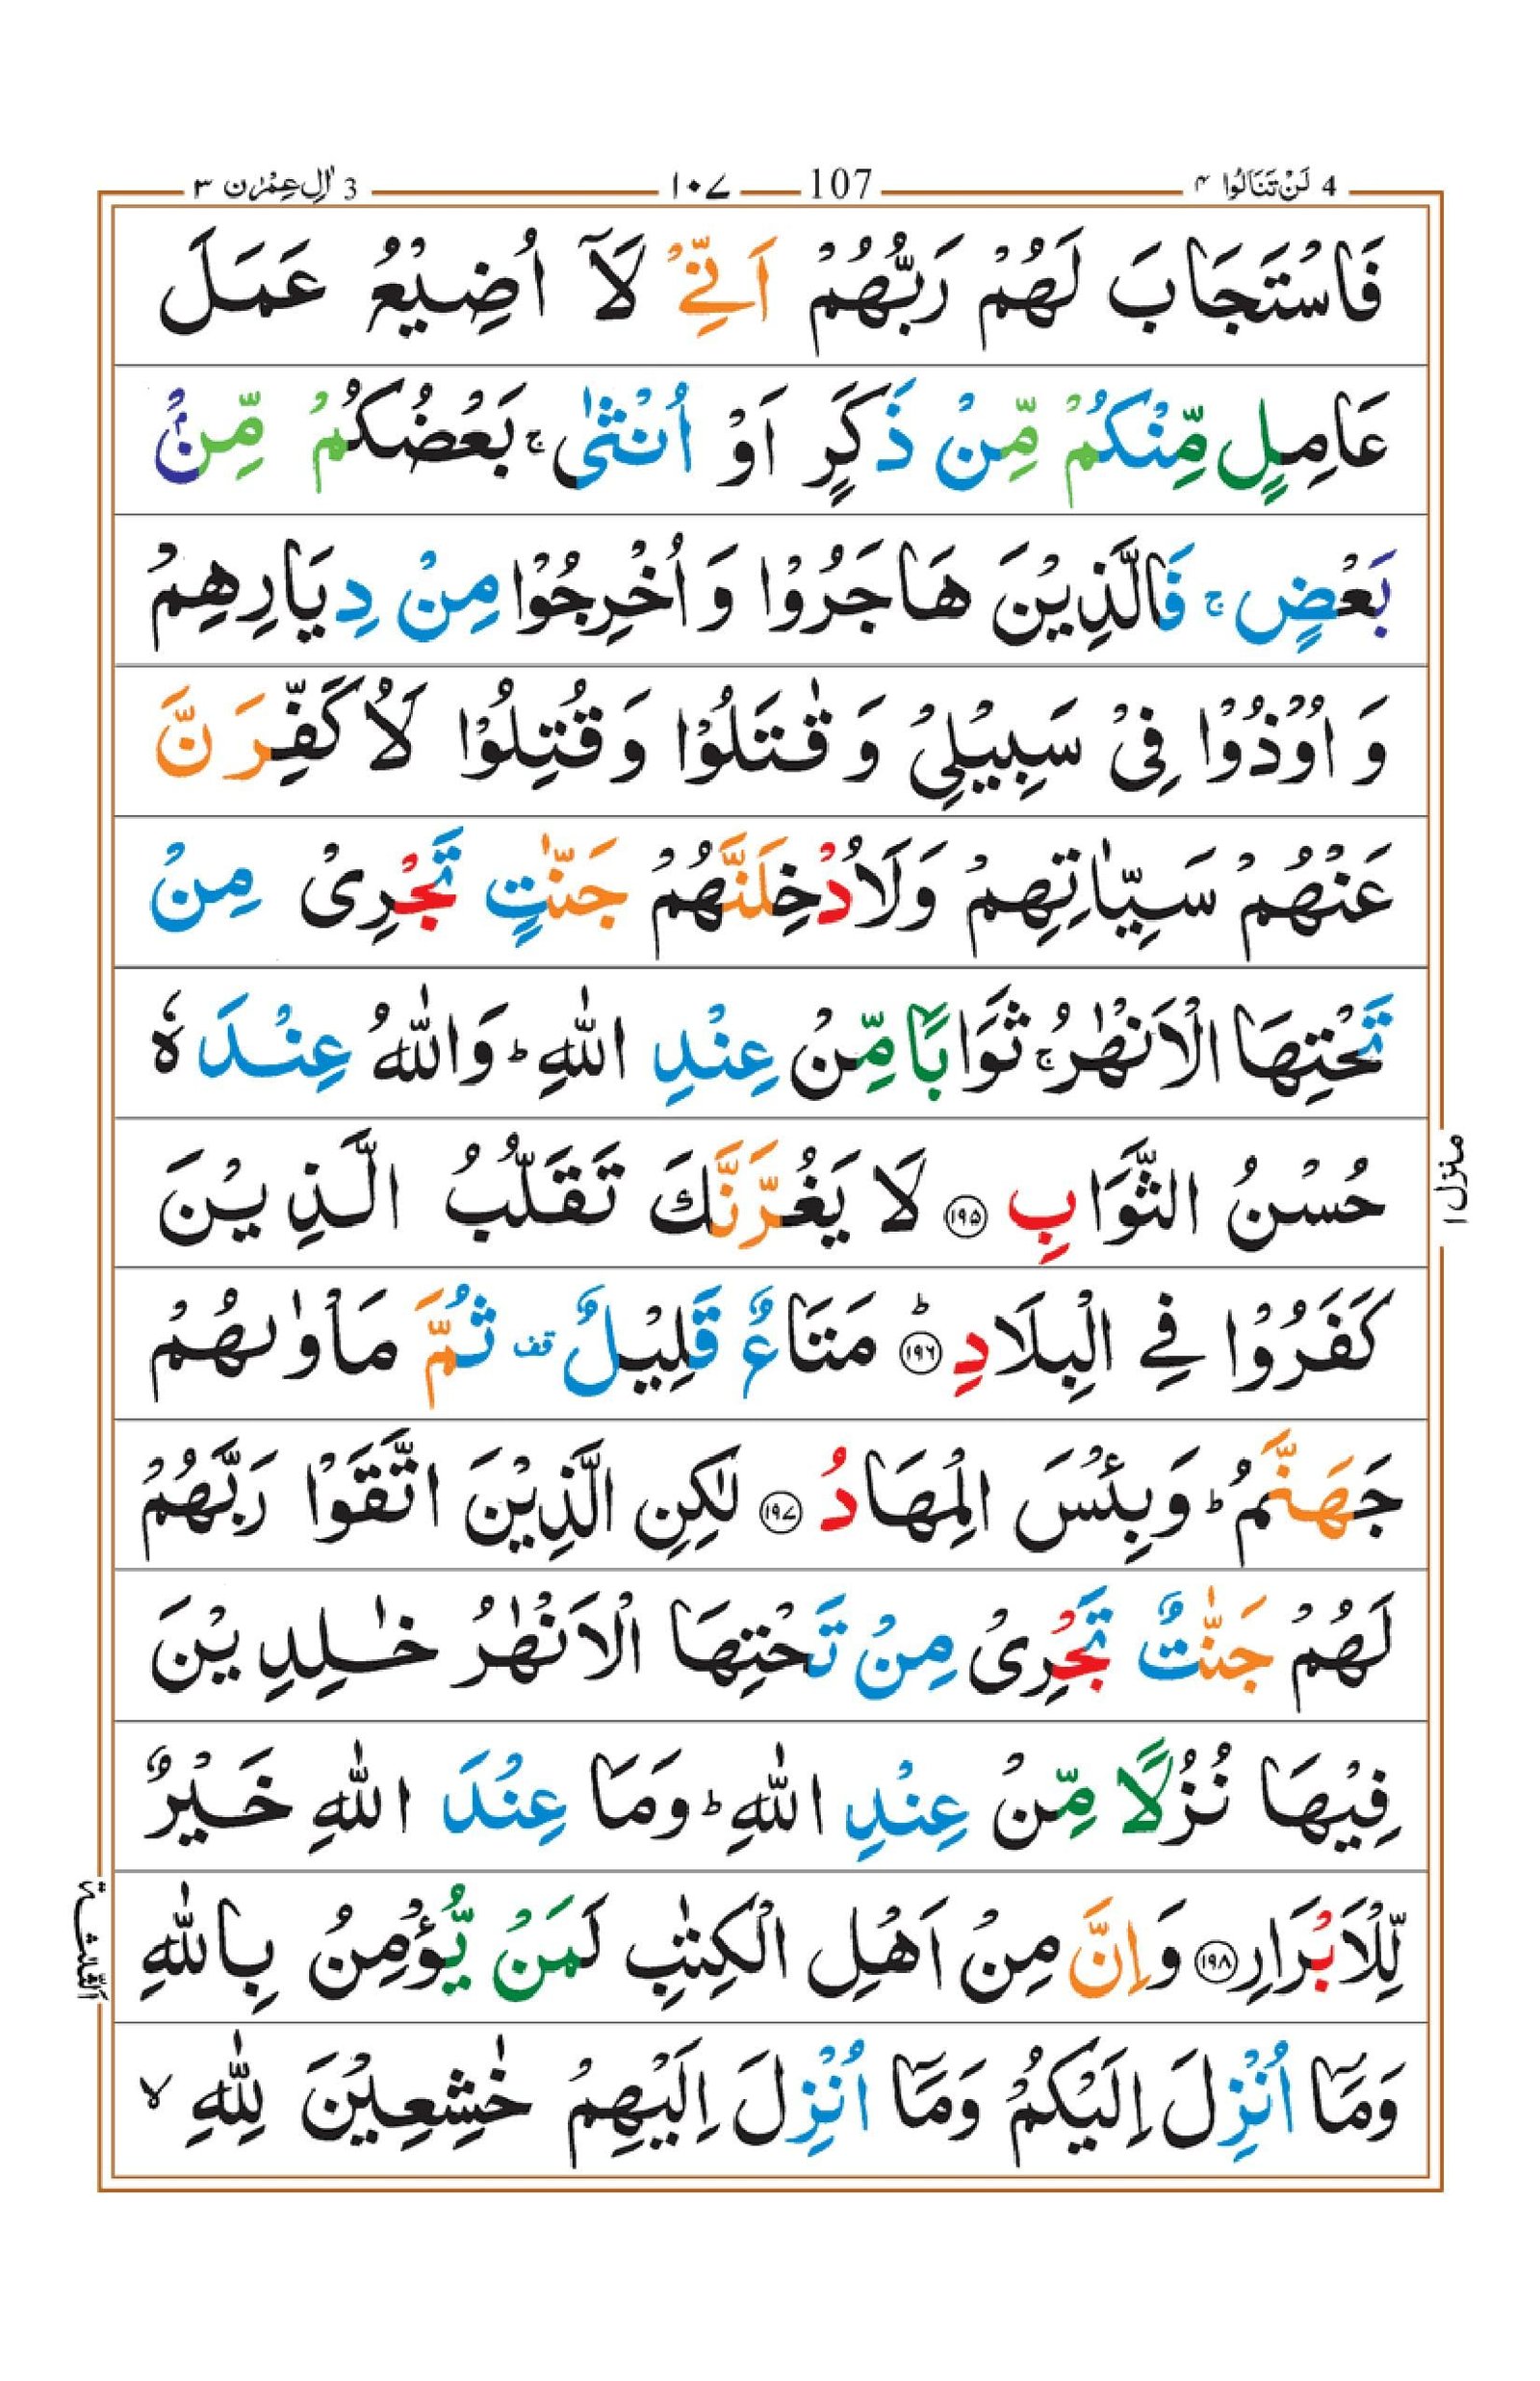 4 لَنْ تَنَالُوا ۴ 107 ۱۰۷ 3 اٰلِ عِمْرٰن ۳
فَاسْتَجَابَ لَهُمْ رَبُّهُمْ اَنِّیْ لَاۤ اُضِیْعُ عَمَلَ
عَامِلٍ مِّنْكُمْ مِّنْ ذَكَرٍ اَوْ اُنْثٰی ۚ بَعْضُكُمْ مِّنْۢ
بَعْضٍ ۚ فَالَّذِیْنَ هَاجَرُوْا وَ اُخْرِجُوْا مِنْ دِیَارِهِمْ
وَ اُوْذُوْا فِیْ سَبِیْلِیْ وَ قٰتَلُوْا وَ قُتِلُوْا لَاُكَفِّرَنَّ
عَنْهُمْ سَیِّاٰتِهِمْ وَلَاُدْخِلَنَّهُمْ جَنّٰتٍ تَجْرِیْ مِنْ
تَحْتِهَا الْاَنْهٰرُ ۚ ثَوَابًا مِّنْ عِنْدِ اللّٰهِ ؕ وَاللّٰهُ عِنْدَهٗ
حُسْنُ الثَّوَابِ ۝۱۹۵ لَا یَغُرَّنَّكَ تَقَلُّبُ الَّذِیْنَ
كَفَرُوْا فِی الْبِلَادِ ؕ۝۱۹۶ مَتَاعٌ قَلِیْلٌ قف ثُمَّ مَاْوٰىهُمْ
جَهَنَّمُ ؕ وَبِئْسَ الْمِهَادُ ۝۱۹۷ لٰكِنِ الَّذِیْنَ اتَّقَوْا رَبَّهُمْ
لَهُمْ جَنّٰتٌ تَجْرِیْ مِنْ تَحْتِهَا الْاَنْهٰرُ خٰلِدِیْنَ
فِیْهَا نُزُلًا مِّنْ عِنْدِ اللّٰهِ ؕ وَمَا عِنْدَ اللّٰهِ خَیْرٌ
لِّلْاَبْرَارِ ۝۱۹۸ وَاِنَّ مِنْ اَهْلِ الْكِتٰبِ لَمَنْ یُّؤْمِنُ بِاللّٰهِ
وَمَاۤ اُنْزِلَ اِلَیْكُمْ وَمَاۤ اُنْزِلَ اِلَیْهِمْ خٰشِعِیْنَ لِلّٰهِ ۙ
منزل ۱
اَلثّلٰثة